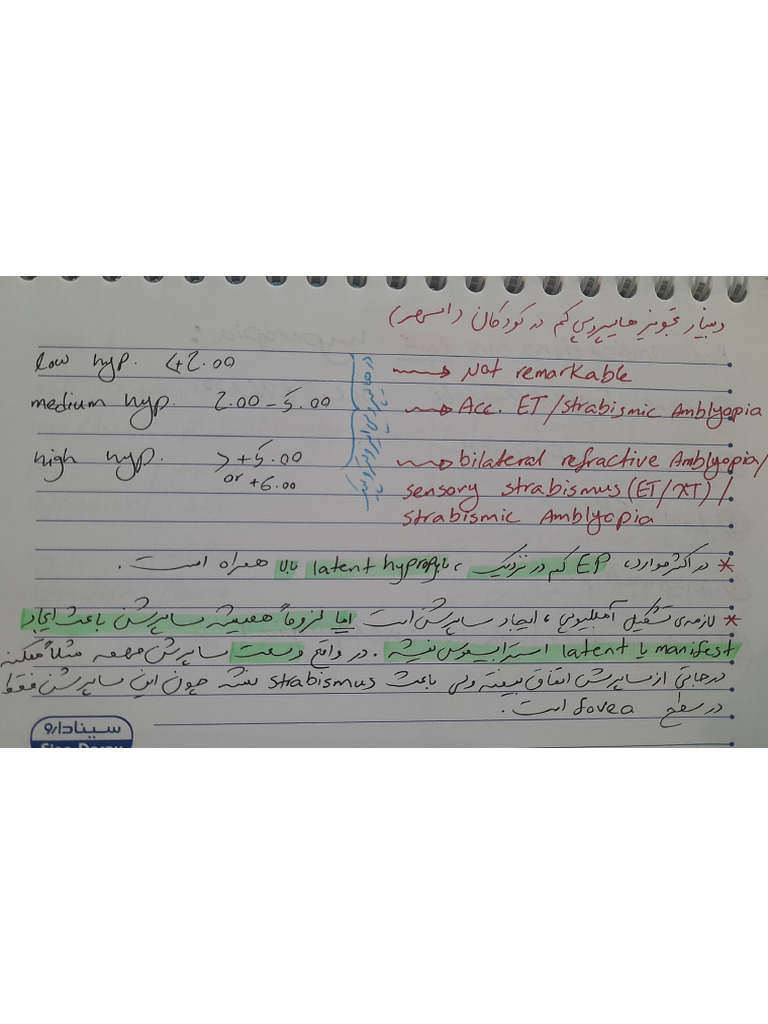 وبینار تجویز هایپروپی کم در کودکان (اسهر)
low hyp. <+2.00 ⟿ Not remarkable
medium hyp. 2.00 – 5.00 ⟿ Acc. ET/strabismic Amblyopia
high hyp. >+5.00 or +6.00 ⟿ bilateral refractive Amblyopia/
sensory strabismus (ET/XT) /
strabismic Amblyopia
* در اکثر موارد، EP کم در نزدیک، با latent hyperopia بالا همراه است.
* لازمه‌ی تشکیل آمبلیوپی، ایجاد ساپرشن است اما لزوماً همیشه ساپرشن باعث ایجاد
manifest یا latent استرابیسموس نمیشه. در واقع وسعت ساپرشن مهمه مثلاً ممکنه
درجاتی از ساپرشن اتفاق بیفته ولی باعث strabismus نشه چون این ساپرشن فقط
در سطح fovea است.
سینادارو
Sina Darou